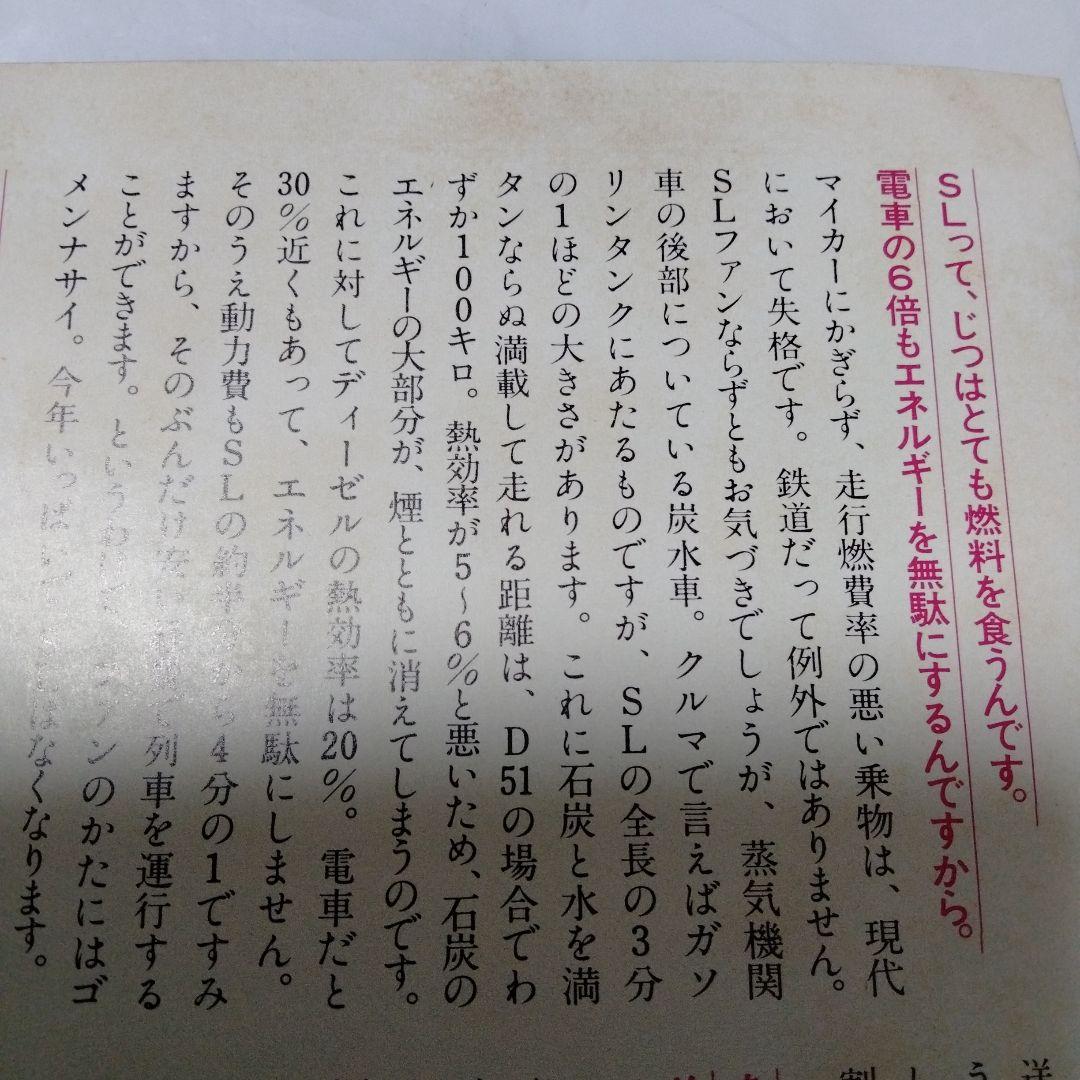 SLって、じつはとても燃料を食うんです。
電車の6倍もエネルギーを無駄にするんですから。
マイカーにかぎらず、走行燃費率の悪い乗物は、現代
において失格です。鉄道だって例外ではありません。
SLファンならずともお気づきでしょうが、蒸気機関
車の後部についている炭水車。クルマで言えばガソ
リンタンクにあたるものですが、SLの全長の3分
の1ほどの大きさがあります。これに石炭と水を満
タンならぬ満載して走れる距離は、D51の場合でわ
ずか100キロ。熱効率が5〜6%と悪いため、石炭の
エネルギーの大部分が、煙とともに消えてしまうのです。
これに対してディーゼルの熱効率は20%。電車だと
30%近くもあって、エネルギーを無駄にしません。
そのうえ動力費もSLの約半分から4分の1ですみ
ますから、そのぶんだけ 列車を運行する
ことができます。というわけで、ファンのかたにはゴ
メンナサイ。今年いっぱい はなくなります。